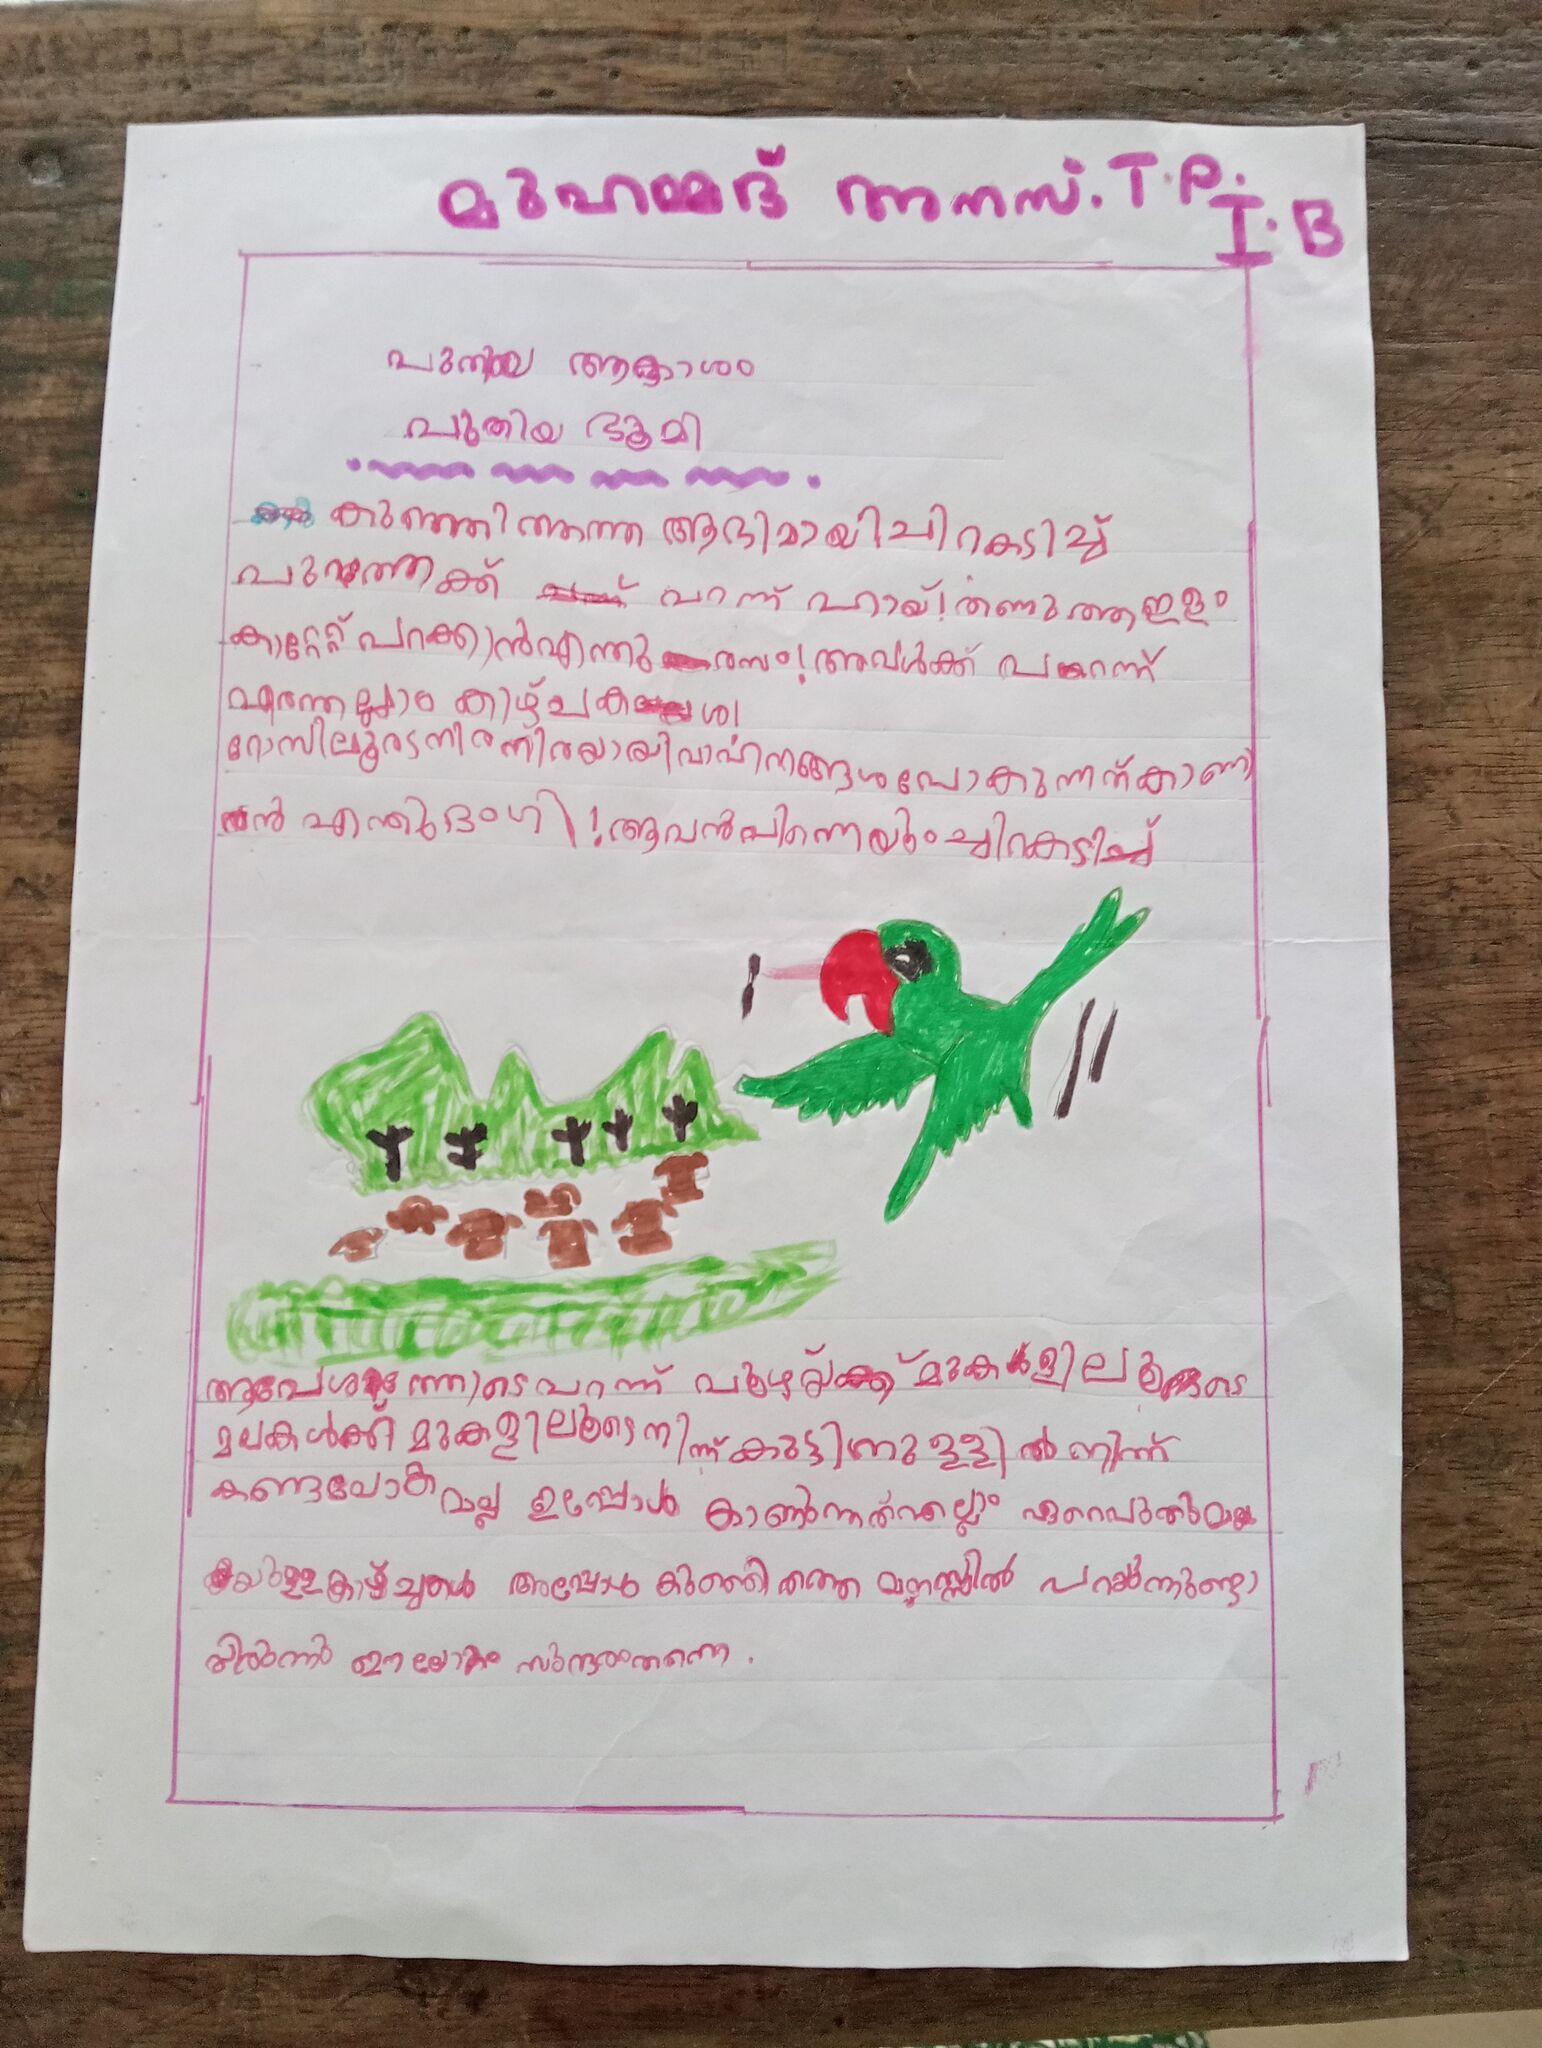 മുഹമ്മദ് അനസ്. T.P.
I.B
പുതിയ ആകാശം
പുതിയ ഭൂമി
കുഞ്ഞിത്തത്ത ആദ്യമായി ചിറകടിച്ച്
പുറത്തേക്ക് പറന്ന് ഹായ്! തണുത്ത ഇളം
കാറ്റേറ്റ് പറക്കാൻ എന്തു രസം! അവൾക്ക് പറന്ന്
എന്തെല്ലാം കാഴ്ചകൾ!
റോഡിലൂടെ നിരനിരയായി വാഹനങ്ങൾ പോകുന്നത് കാണാ
ൻ എന്തു ഭംഗി! അവൻ പിന്നെയും ചിറകടിച്ച്
ആവേശത്തോടെ പറന്ന് പുഴയ്ക്ക് മുകളിലൂടെ
മലകൾക്ക് മുകളിലൂടെ നിന്ന് കൂട്ടിനുള്ളിൽ നിന്ന്
കണ്ടലോകമല്ല ഇപ്പോൾ കാണുന്നതെല്ലാം ഏറെ പുതുമ
യുള്ള കാഴ്ച്ചകൾ അപ്പോൾ കുഞ്ഞിതത്ത മനസ്സിൽ പറയുന്നുണ്ടാ
യിരുന്നു ഈ ലോകം സുന്ദരംതന്നെ.